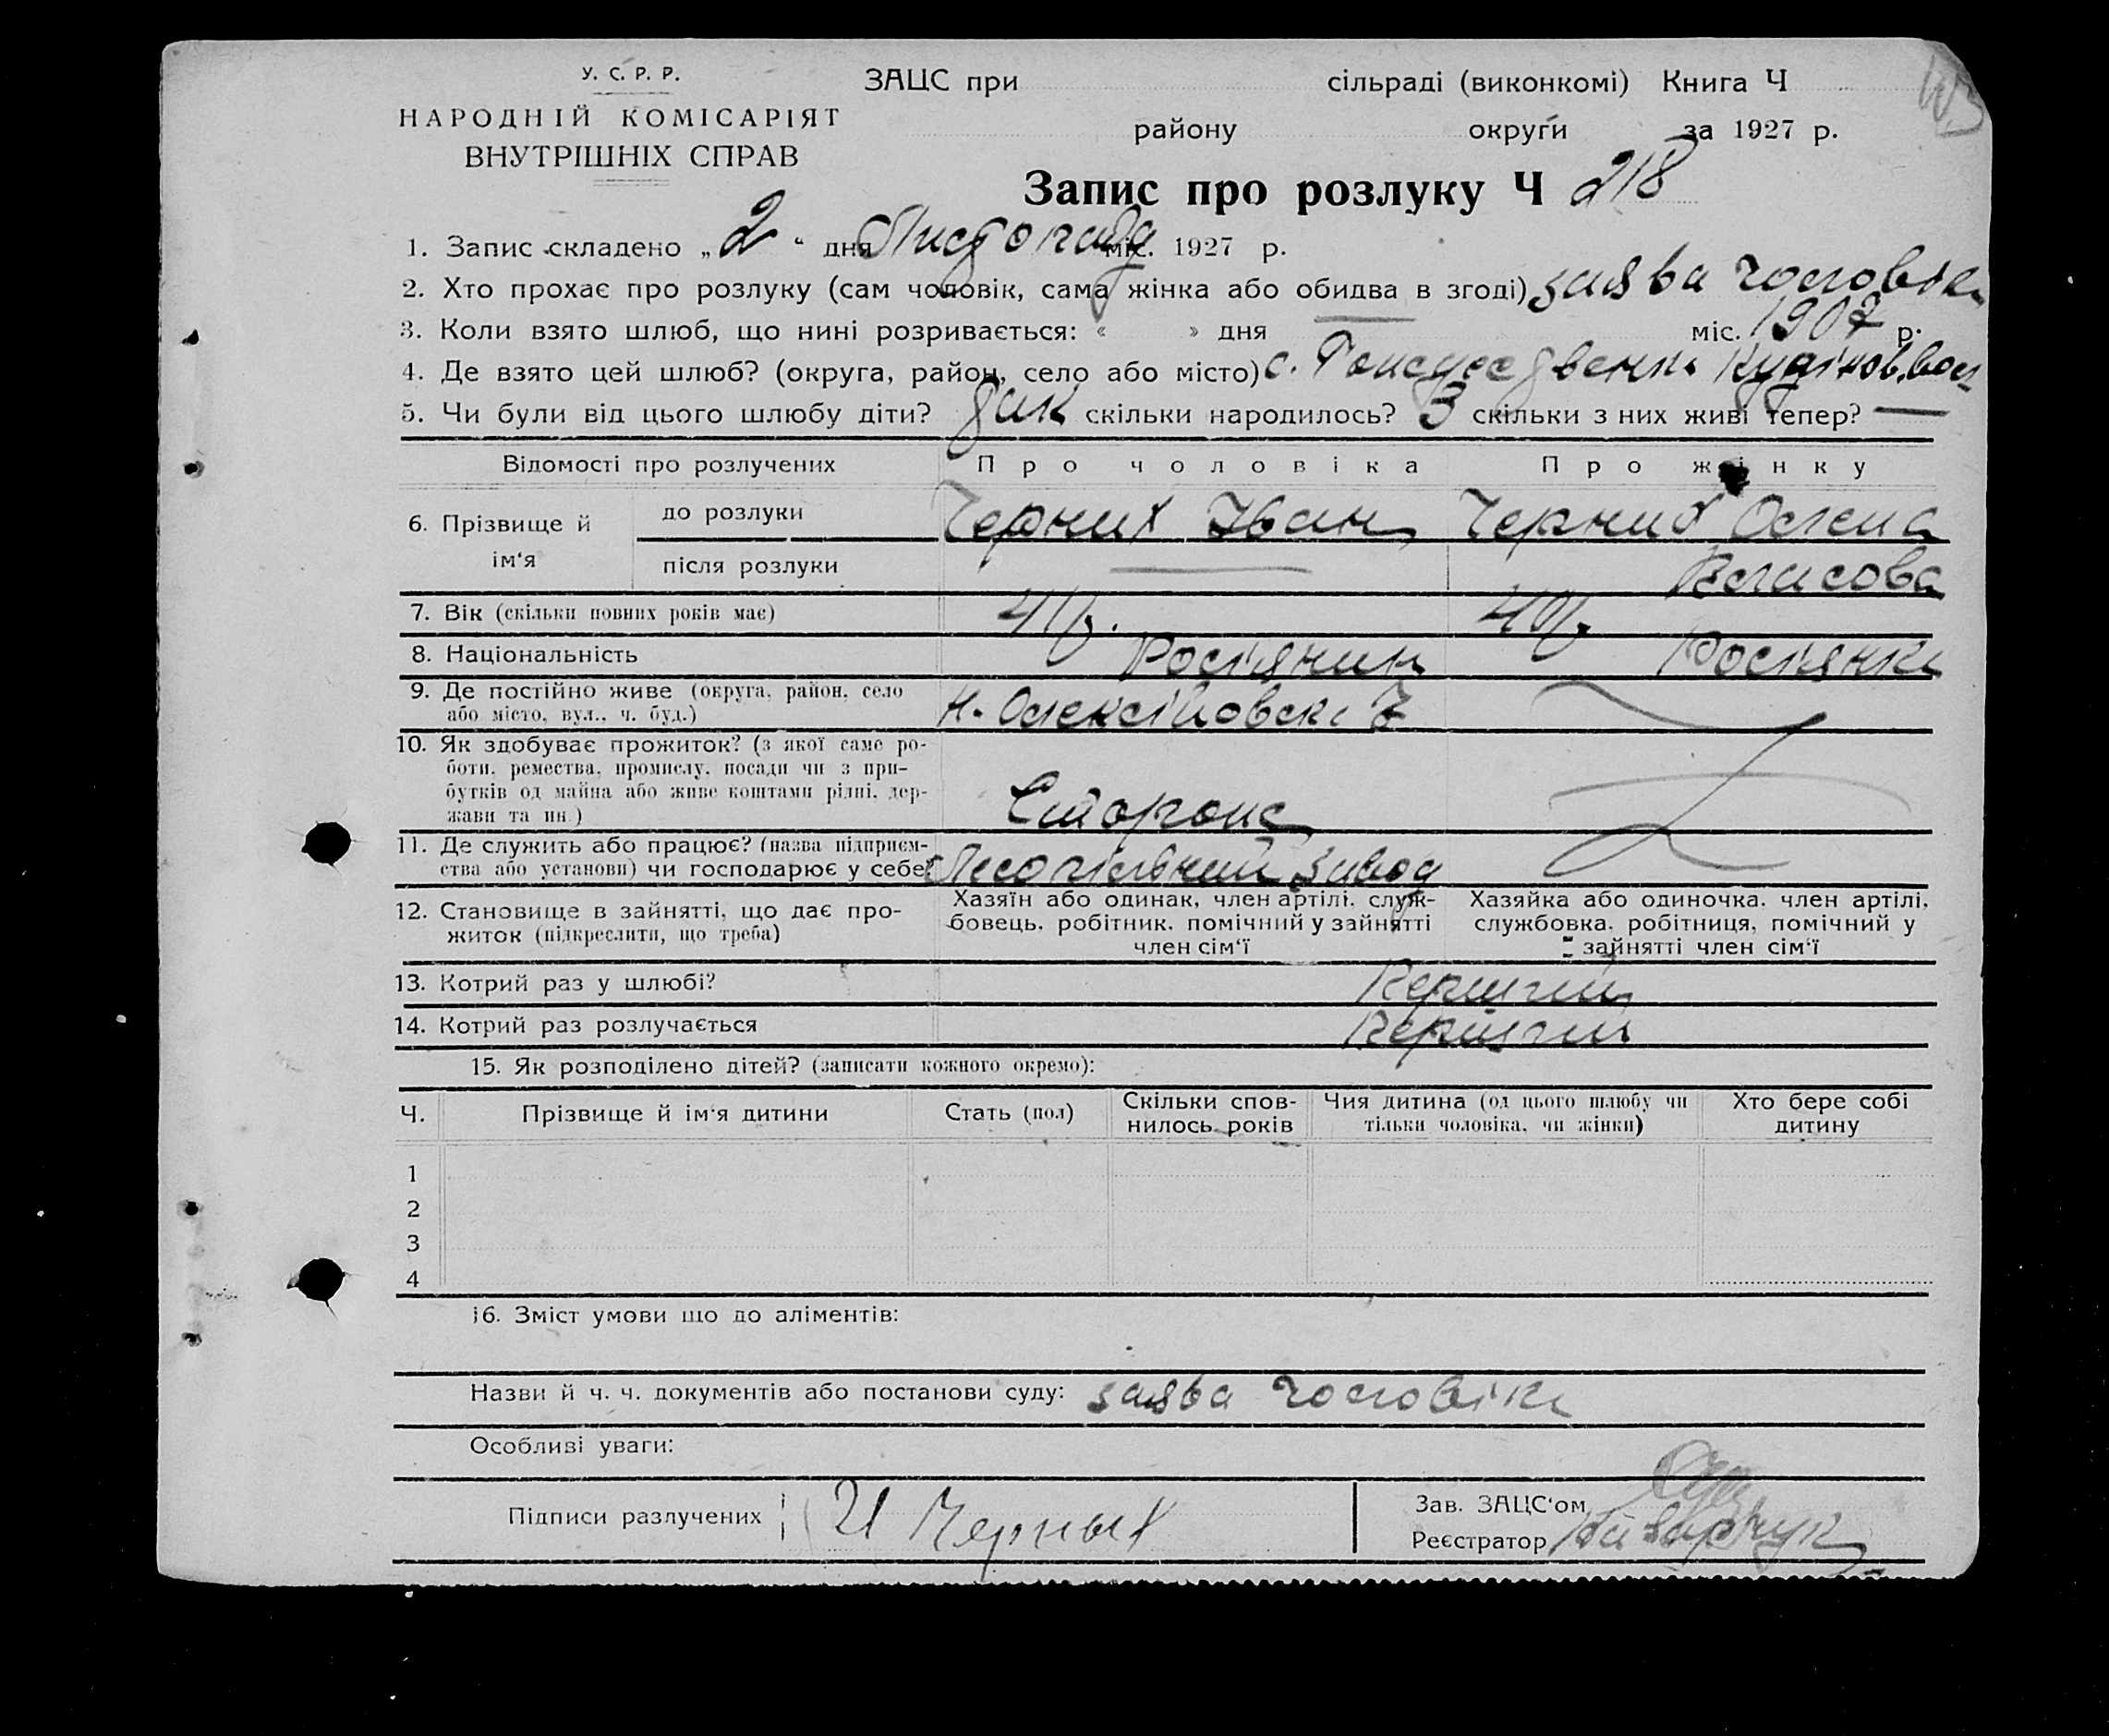 У. С. Р. Р.
НАРОДНІЙ КОМІСАРІЯТ
ВНУТРІШНІХ СПРАВ
ЗАЦС при сільраді (виконкомі) Книга Ч
району округи за 1927 р.
Запис про розлуку Ч 218
1. Запис складено „2“ дня Листопада міс. 1927 р.
2. Хто прохає про розлуку (сам чоловік, сама жінка або обидва в згоді) заява чоловіка
3. Коли взято шлюб, що нині розривається: « » дня міс. 1907 р.
4. Де взято цей шлюб? (округа, район, село або місто) с.
5. Чи були від цього шлюбу діти? так скільки народилось? 3 скільки з них живі тепер? —
Відомості про розлучених Про чоловіка Про жінку
6. Прізвище й ім‘я
до розлуки Черних Іван Черних Олена
після розлуки — Власова
7. Вік (скільки повних років має) 41 р. 40 р.
8. Національність Росіянин Росіянка
9. Де постійно живе (округа, район, село
або місто, вул., ч. буд.) Н. Олексіївська 7
10. Як здобуває прожиток? (з якої саме ро-
боти, ремества, промислу, посади чи з при-
бутків од майна або живе коштами рідні, дер-
жави та ин.) Сторож
11. Де служить або працює? (назва підприєм-
ства або установи) чи господарює у себе? Лісопільний завод
12. Становище в зайнятті, що дає про-
житок (підкреслити, що треба)
Хазяїн або одинак, член артілі, служ-
бовець, робітник, помічний у зайнятті
член сім‘ї
Хазяйка або одиночка, член артілі,
службовка, робітниця, помічний у
зайнятті член сім‘ї
13. Котрий раз у шлюбі?
14. Котрий раз розлучається
15. Як розподілено дітей? (записати кожного окремо):
Ч. Прізвище й ім‘я дитини Стать (пол) Скільки спов-
нилось років Чия дитина (од цього шлюбу чи
тільки чоловіка, чи жінки) Хто бере собі
дитину
1
2
3
4
16. Зміст умови що до аліментів:
Назви й ч. ч. документів або постанови суду: заява чоловіка
Особливі уваги:
Підписи разлучених И Черных
Зав. ЗАЦС‘ом
Реєстратор